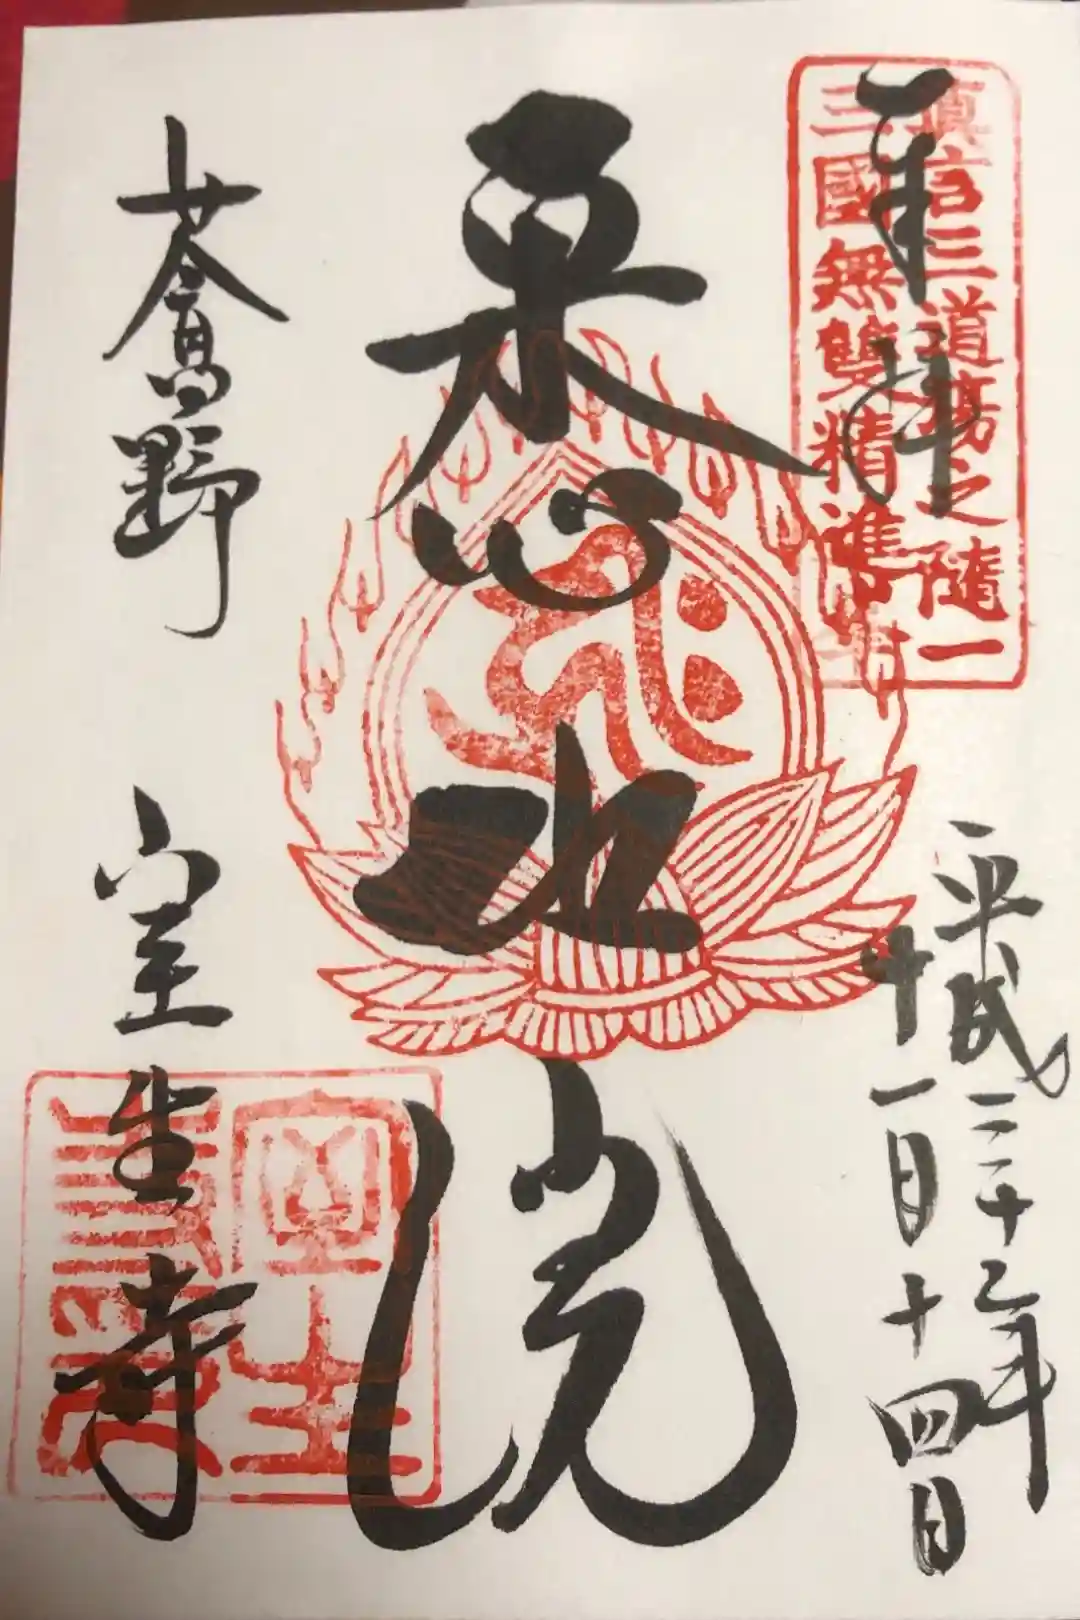 奉拝
真言三道場之随一
三國無雙精進
平成二十
年
十一月十四日
悉地院
女人高野 室生寺
室生